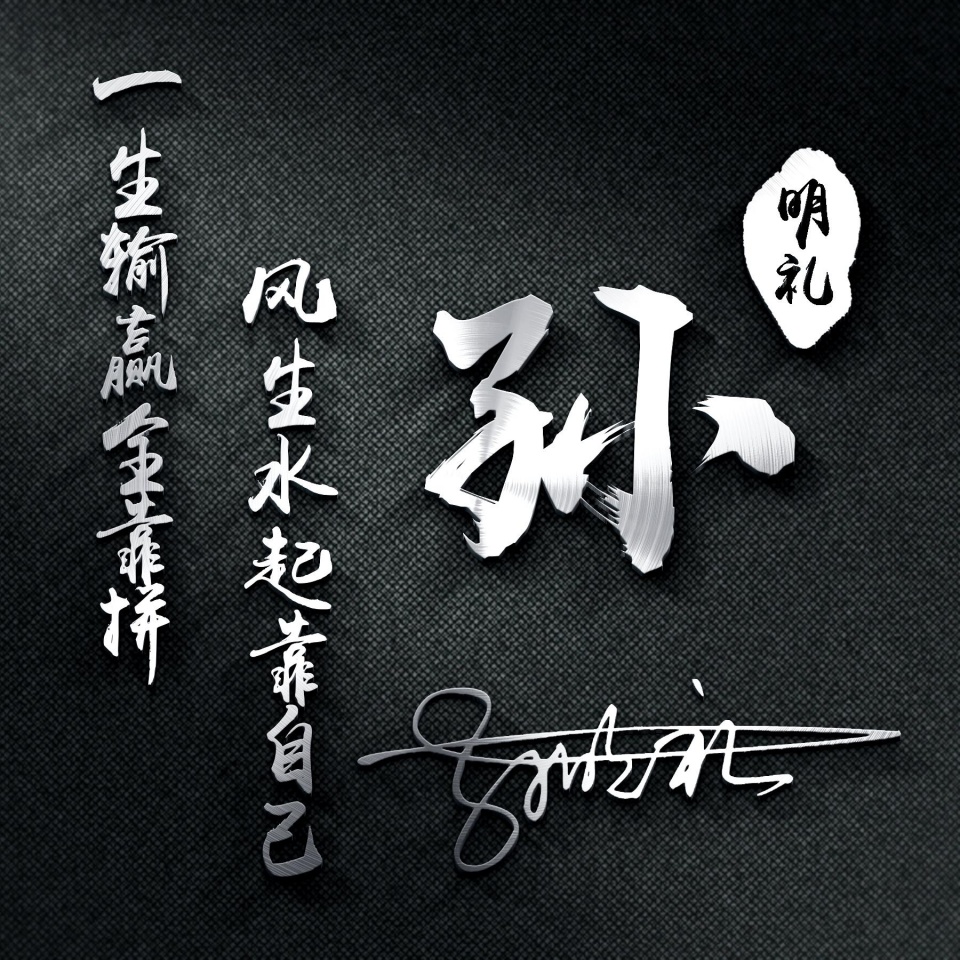 明礼
孙
风生水起靠自己
一生输赢全靠拼
孙明礼